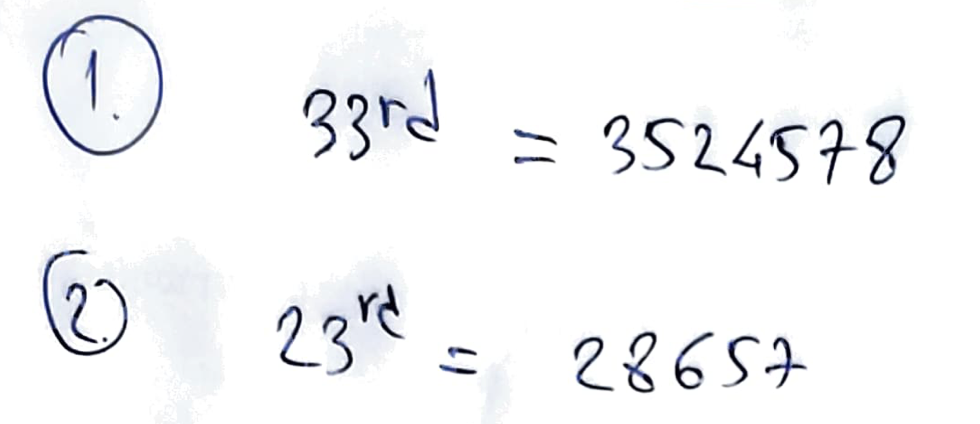 1. 33rd = 3524578
2. 23rd = 28657